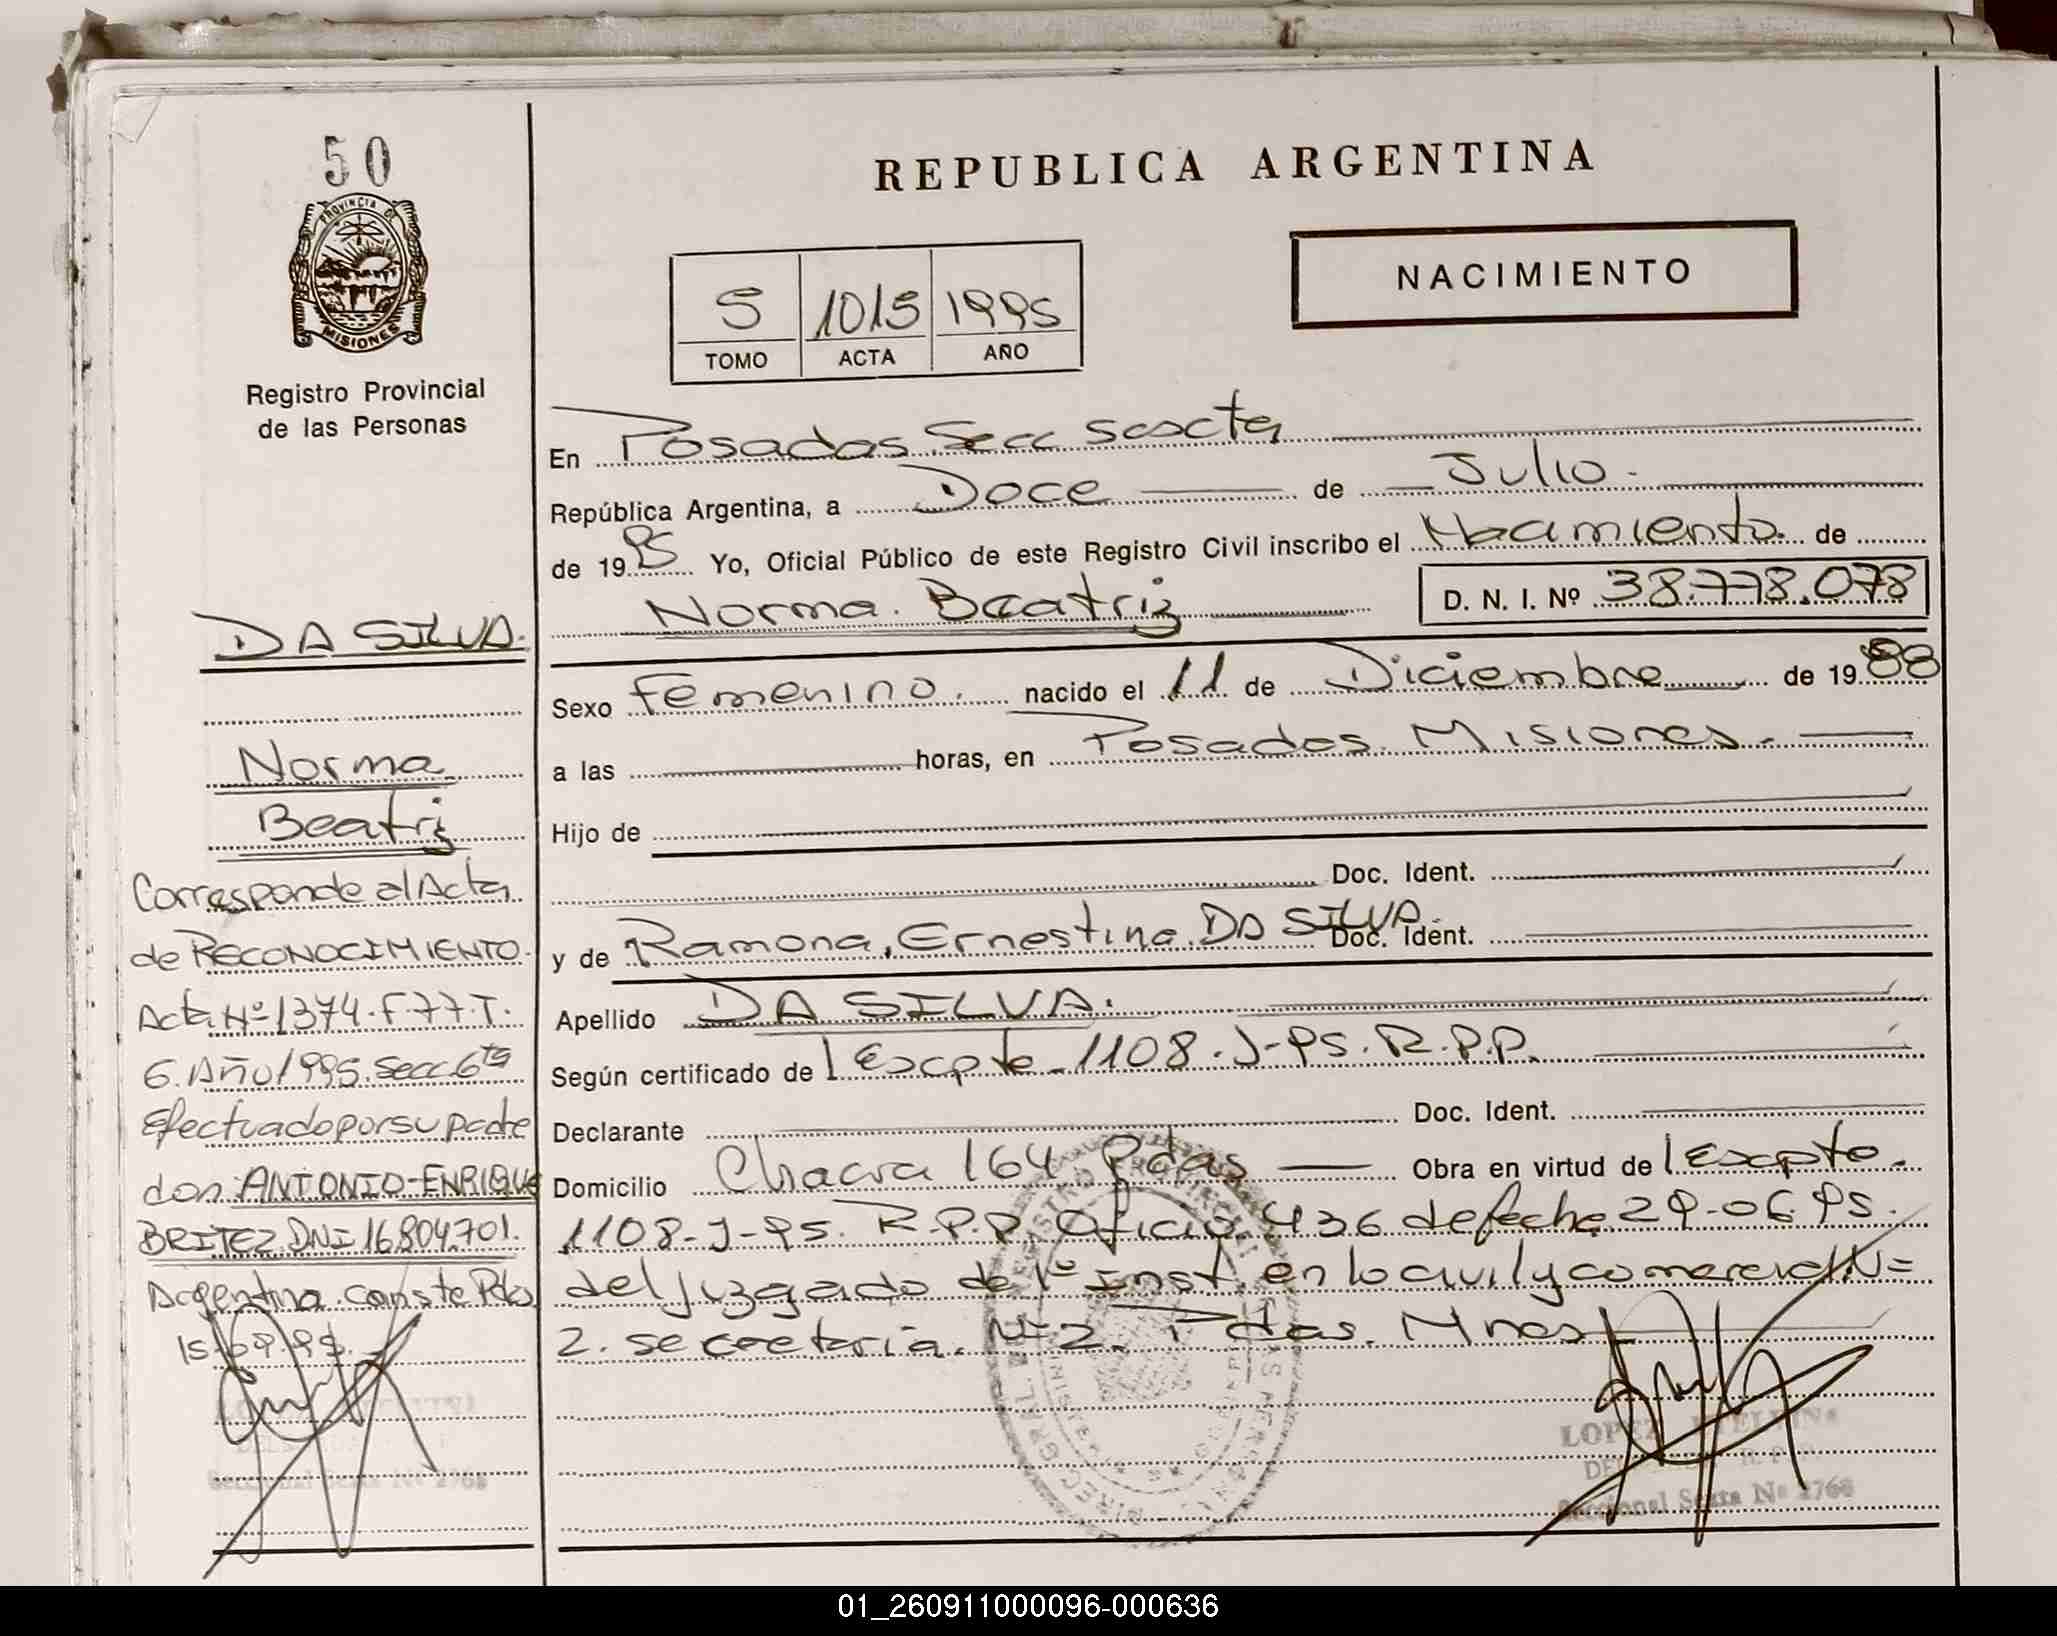 50
PROVINCIA DE
MISIONES
Registro Provincial
de las Personas
DA SILVA.
Norma
Beatriz
Corresponde al Acta
de RECONOCIMIENTO.
Acta Nº 1374. F 77. T.
6. Año 1995. Secc 6ta
Efectuado por su padre
don: ANTONIO-ENRIQUE
BRITEZ DNI 16.804.701.
Argentina. conste Pdas
15.09.95.
Seccional Sexta Nº 2768
REPUBLICA ARGENTINA
NACIMIENTO
5 1015 1995
TOMO ACTA AÑO
En Posadas Secc sexta
República Argentina, a Doce de Julio.
de 1995 Yo, Oficial Público de este Registro Civil inscribo el Nacimiento. de
Norma. Beatriz D. N. I. Nº 38.778.078
Sexo Femenino. nacido el 11 de Diciembre de 1988
a las horas, en Posadas. Misiones.
Hijo de
Doc. Ident.
y de Ramona, Ernestina DA SILVA. Doc. Ident.
Apellido DA SILVA.
Según certificado de Expte. 1108. J-95. R.P.P.
Declarante Doc. Ident.
Domicilio Chacra 164 Pdas Obra en virtud de Expte.
1108-J-95. R.P.P. Oficio. 436 de fecha 29-06.95.
del juzgado de 1º Inst. en lo civil y comercial Nº
2. secretaria. Nº 2. Pdas. Mnes
LOPEZ
Seccional Sexta Nº 2768
01_260911000096-000636